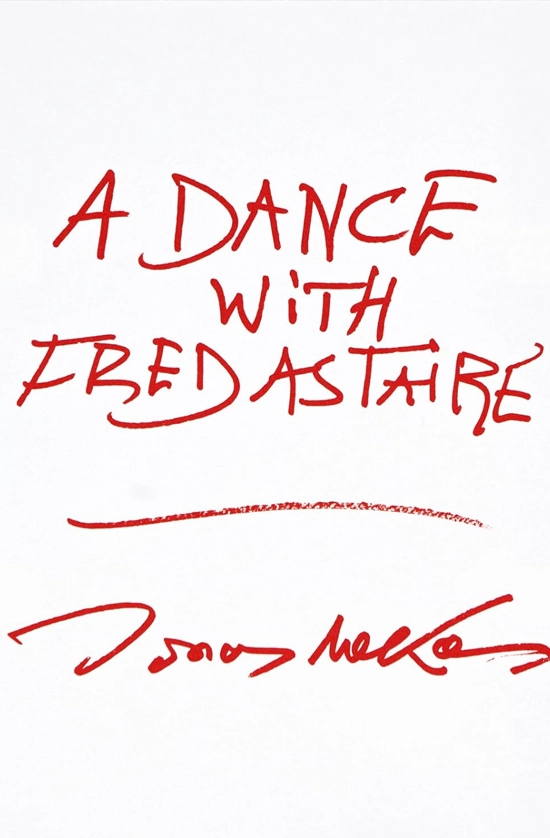 A DANCE
WiTH
FRED ASTAIRE
Jonas Mekas